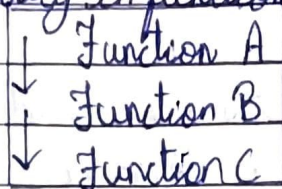 Function A
Function B
Function C